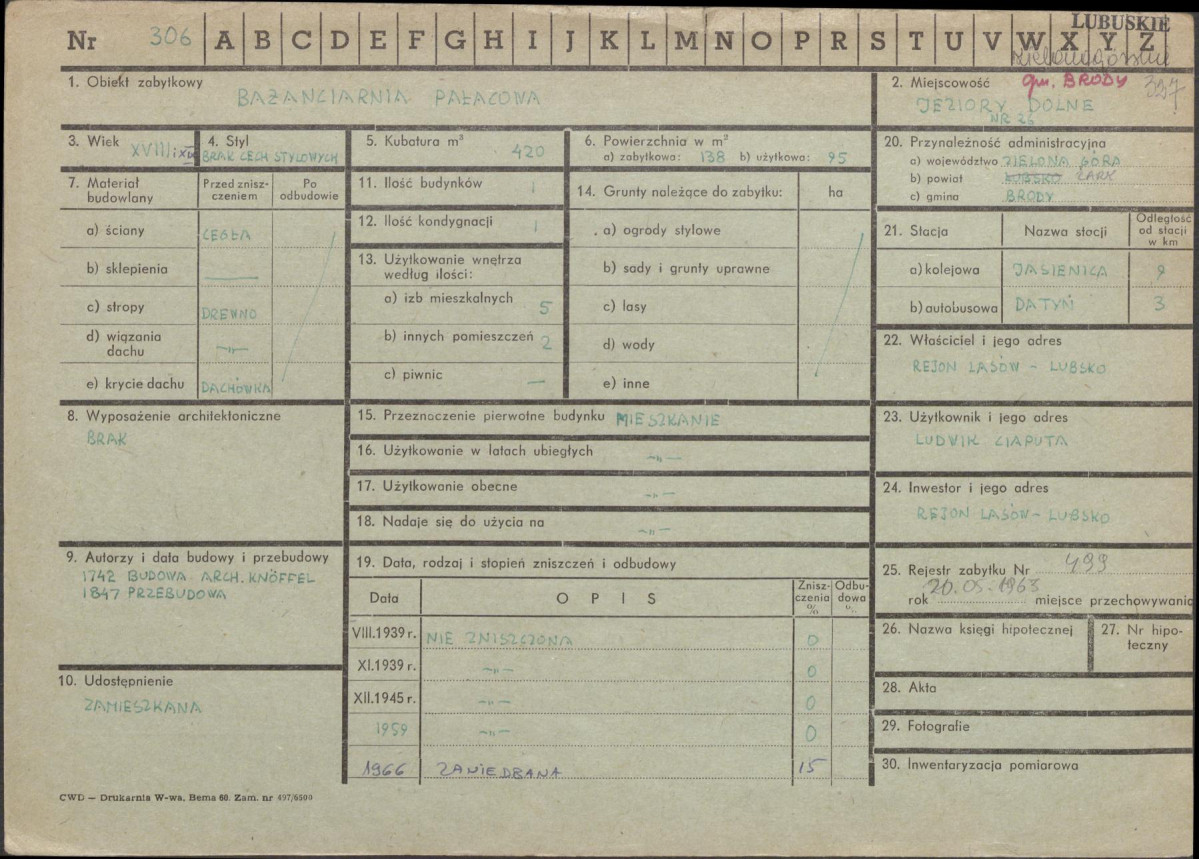 LUBUSKIE
Nr 306 A B C D E F G H I J K L M N O P R S T U V W X Y Z
1. Obiekt zabytkowy
BAŻANCIARNIA PAŁACOWA
2. Miejscowość gm. BRODY 397
JEZIORY DOLNE
NR 26
3. Wiek XVIII i XIX
4. Styl
BRAK CECH STYLOWYCH
5. Kubatura m³
420
6. Powierzchnia w m²
a) zabytkowa: 138 b) użytkowa: 95
20. Przynależność administracyjna
a) województwo ZIELONA GÓRA
b) powiat LUBSKO ŻARY
c) gmina BRODY
7. Materiał budowlany
Przed zniszczeniem
Po odbudowie
a) ściany CEGŁA
b) sklepienia —
c) stropy DREWNO
d) wiązania dachu —„—
e) krycie dachu DACHÓWKA
11. Ilość budynków 1
12. Ilość kondygnacji 1
13. Użytkowanie wnętrza
według ilości:
a) izb mieszkalnych 5
b) innych pomieszczeń 2
c) piwnic —
14. Grunty należące do zabytku: ha
a) ogrody stylowe
b) sady i grunty uprawne
c) lasy
d) wody
e) inne
21. Stacja Nazwa stacji Odległość od stacji w km
a) kolejowa JASIENICA 9
b) autobusowa DATYŃ 3
22. Właściciel i jego adres
REJON LASÓW – LUBSKO
8. Wyposażenie architektoniczne
BRAK
15. Przeznaczenie pierwotne budynku MIESZKANIE
16. Użytkowanie w latach ubiegłych —„—
17. Użytkowanie obecne —„—
18. Nadaje się do użycia na —„—
23. Użytkownik i jego adres
LUDWIK CIAPUTA
24. Inwestor i jego adres
REJON LASÓW – LUBSKO
9. Autorzy i data budowy i przebudowy
1742 BUDOWA ARCH. KNÖFFEL
1847 PRZEBUDOWA
19. Data, rodzaj i stopień zniszczeń i odbudowy
Data OPIS Zniszczenia % Odbudowa %
VIII.1939 r. NIE ZNISZCZONA 0
XI.1939 r. —„— 0
XII.1945 r. —„— 0
1959 —„— 0
1966 ZANIEDBANA 15
10. Udostępnienie
ZAMIESZKANA
25. Rejestr zabytku Nr 499
20.05.1963
rok miejsce przechowywania
26. Nazwa księgi hipotecznej
27. Nr hipoteczny
28. Akta
29. Fotografie
30. Inwentaryzacja pomiarowa
CWD — Drukarnia W-wa, Bema 60. Zam. nr 497/6500